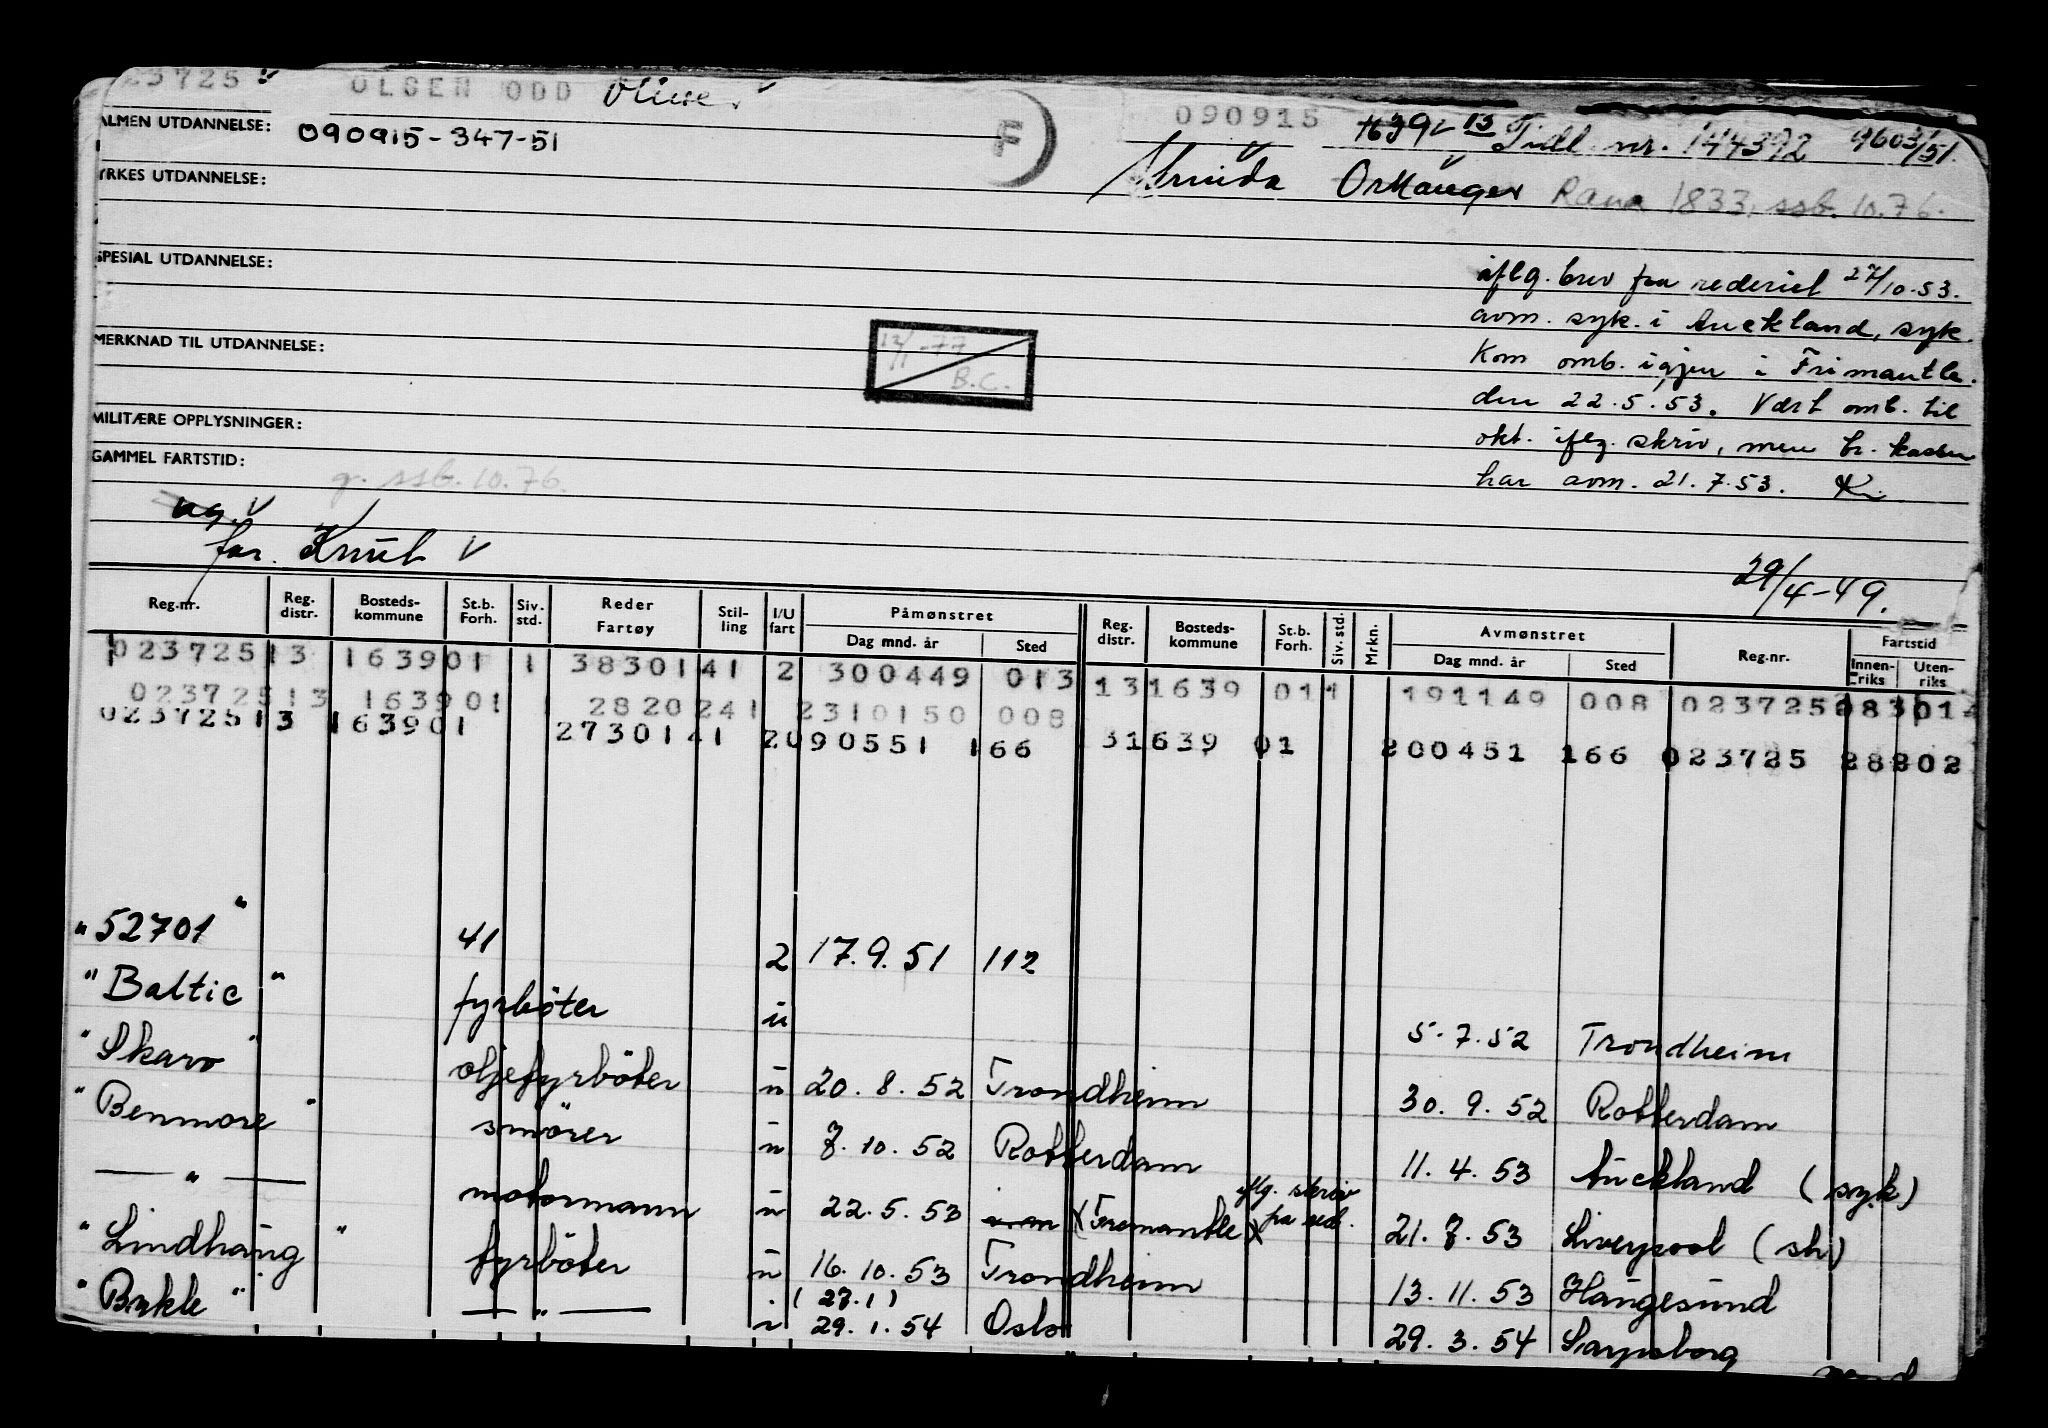 23725 OLSEN ODD Oliver
090915 1639 13 Tidl. nr. 144392 9603/51.
ALMEN UTDANNELSE: 090915-347-51
F
Strinda Orkanger Rana 1833, ssb. 10.76.
YRKES UTDANNELSE:
SPESIAL UTDANNELSE:
iflg. brev fra rederiet 27/10.53.
avm. syk. i Auckland, syk.
MERKNAD TIL UTDANNELSE:
12/1-77
B.C.
Kom omb. igjen i Frimantle.
den 22.5.53. Vært omb. til
MILITÆRE OPPLYSNINGER:
okt. iflg. skriv, men tr. kassen
GAMMEL FARTSTID:
har avm. 21.7.53. K.
g. ssb. 10.76.
ug. V
far. Knut V
29/4-49.
Reg.nr. Reg. distr. Bosteds-kommune St.b. Forh. Siv. std. Reder Fartøy Stil-ling I/U fart Påmønstret Dag mnd. år Sted Reg. distr. Bosteds-kommune St.b. Forh. Siv. std. Mrkn. Avmønstret Dag mnd. år Sted Reg.nr. Fartstid Innen-riks Uten-riks
023725 13 1639 01 1 3830141 2 300449 013 13 1639 01 1 191149 008 023725 083 014
023725 13 1639 01 1 2820241 2 310150 008
023725 13 1639 01 2730141 2 090551 166 31639 01 200451 166 023725 28202
"52701" 41 2 17.9.51 112
"Baltic" fyrbøter u 5.7.52 Trondheim
"Skaro" oljefyrbøter u 20.8.52 Trondheim 30.9.52 Rotterdam
"Benmore" smører u 7.10.52 Rotterdam 11.4.53 Auckland (syk)
— " — motormann u 22.5.53 (Fremantle) iflg. skriv fra red. 21.7.53 Liverpool (sh)
"Lindhaug" fyrbøter u 16.10.53 Trondheim 13.11.53 Haugesund
"Bykle" — " — (27.1) 29.1.54 Oslo 29.3.54 Sarpsborg